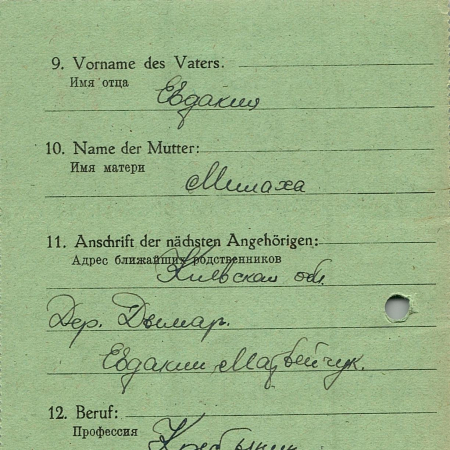 9. Vorname des Vaters.
Имя отца
Евдаким
10. Name der Mutter:
Имя матери
Милаха
11. Anschrift der nächsten Angehörigen:
Адрес ближайших родственников
Киевская обл.
Дер. Дымар.
Евдаким Матвейчук.
12. Beruf:
Профессия